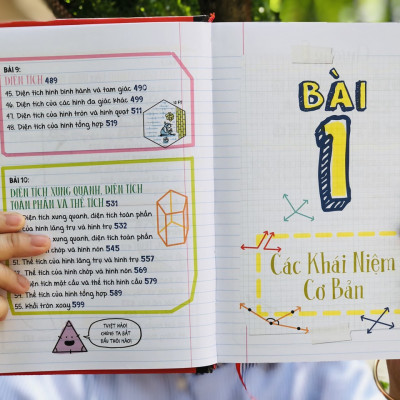 BÀI 9:
DIỆN TÍCH 489
45. Diện tích hình bình hành và tam giác 490
46. Diện tích của các hình đa giác khác 499
47. Diện tích của hình tròn và hình quạt 511
48. Diện tích của hình tổng hợp 519
BÀI 10:
DIỆN TÍCH XUNG QUANH, DIỆN TÍCH
TOÀN PHẦN VÀ THỂ TÍCH 531
Diện tích xung quanh, diện tích toàn phần
của hình lăng trụ và hình trụ 532
Diện tích xung quanh, diện tích toàn phần
hình chóp và hình nón 545
51. Thể tích của hình lăng trụ và hình trụ 557
Thể tích của hình chóp và hình nón 569
Diện tích mặt cầu và thể tích hình cầu 579
54. Thể tích của hình tổng hợp 589
55. Khối tròn xoay 599
TUYỆT HẢO!
CHÚNG TA BẮT
ĐẦU THÔI NÀO!
BÀI
1
Các Khái Niệm
Cơ Bản